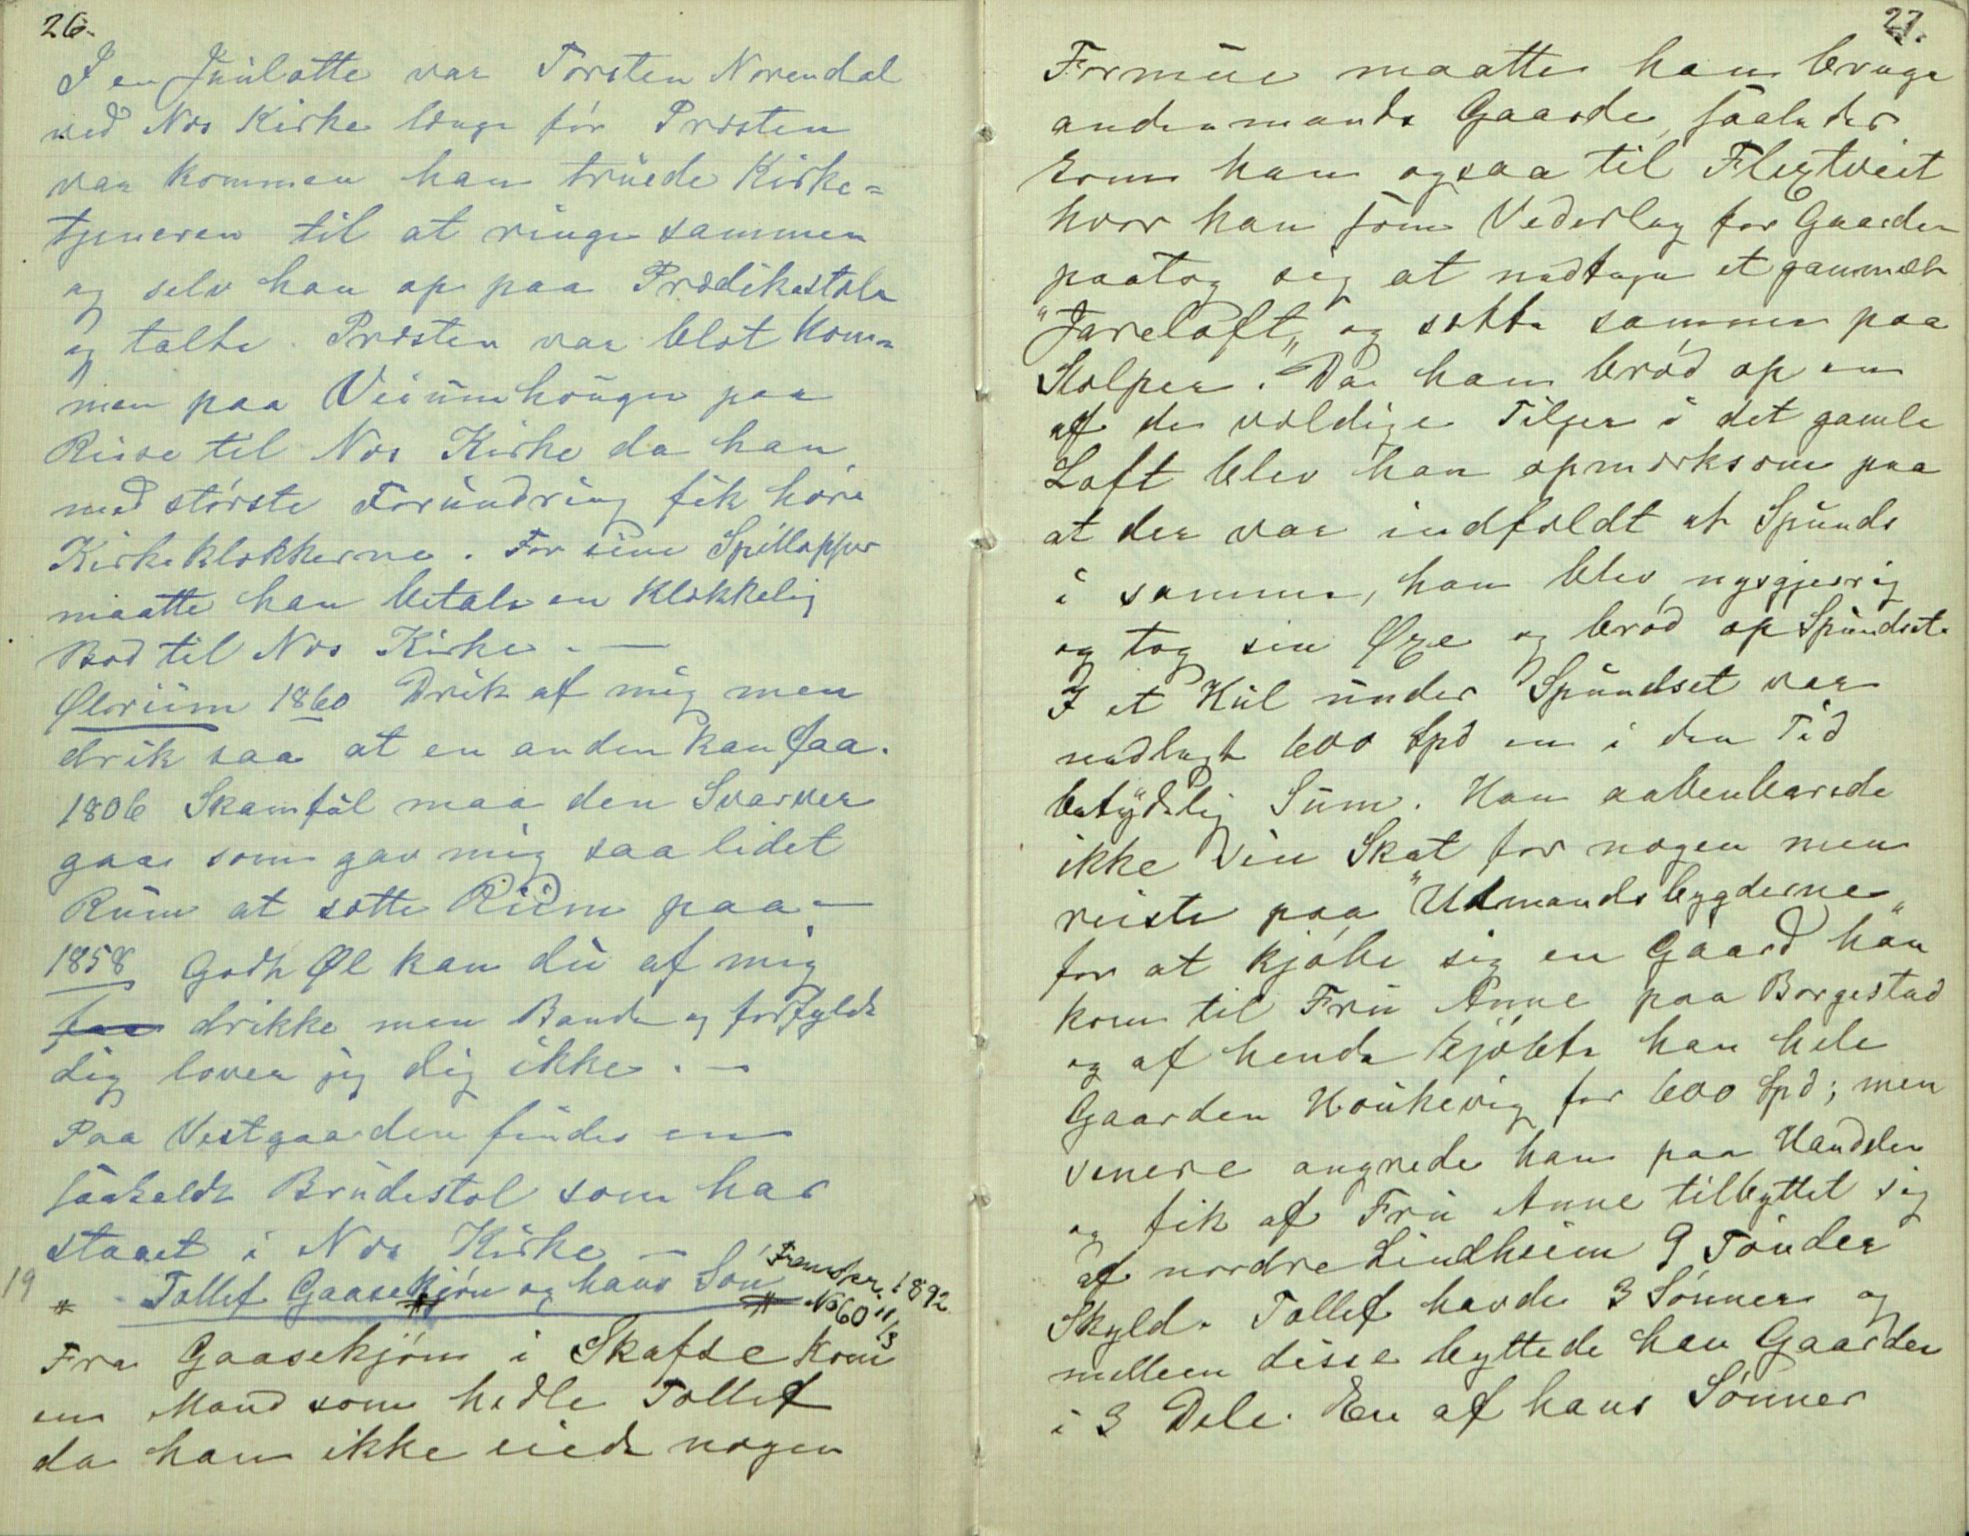 26.
I en Juulotte var Torsten Norendal
ved Nes Kirke længe før Præsten
var kommen han truede Kirke=
tjeneren til at ringe sammen
og selv han op paa Prædikestole
og talte. Præsten var blot kom=
men paa Veiumhougen paa
Reise til Nes Kirke da han
med største Forundring fik høre
Kirkeklokkerne. For sine Spillopper
maatte han betale en klækkelig
Bod til Nes Kirke. —
Øloriüm 1860 Drik af mig men
drik saa at en anden kan faa.
1806 Skamfül maa den Svarver
gaa som gav mig saa lidet
Rum at sette Riim paa —
1858 Godt Øl kan du af mig
faa drikke men Bande og forfylde
dig lover jeg dig ikke. —
Paa Vestgaarden findes en
saakaldt Brudestol som har
staaet i Nes Kirke —
19 # - Tollef Gaasekjøn og hans Søn # Fransker. 1892
No 60 11/3
Fra Gaasekjøn i Skafse kom
en Mand som hedte Tollef
da han ikke eiede nogen
27.
Formue maatte han bruge
andenmands Gaarde, saaledes
kom han ogsaa til Flextveit
hvor han som Vederlag for Gaarden
paatog sig at nedtage et gammelt
"Jareloft„ og sætte sammen paa
Stolper. Da han brød op en
af de vældige Tiljer i det gamle
Loft blev han opmærksom paa
at der var indfældt et Spunds
i samme, han blev nysgjerrig
og tog sin Øxe og brød op Spundset.
I et Hul under Spundset var
nedlagt 600 Spd en i den Tid
betydelig Sum. Han aabenbarede
ikke sin Skat for nogen men
reiste paa "Udmandsbygderne„
for at kjøbe sig en Gaard han
kom til Fru Anne paa Borgestad
og af hende kjøbte han hele
Gaarden Houkevig for 600 Spd; men
senere angrede han paa Handelen
og fik af Fru Anne tilbyttet sig
af nordre Lindheim 9 Tønder
Skyld. Tollef havde 3 Sønner og
mellem disse byttede han Gaarden
i 3 Dele. En af hans Sønner